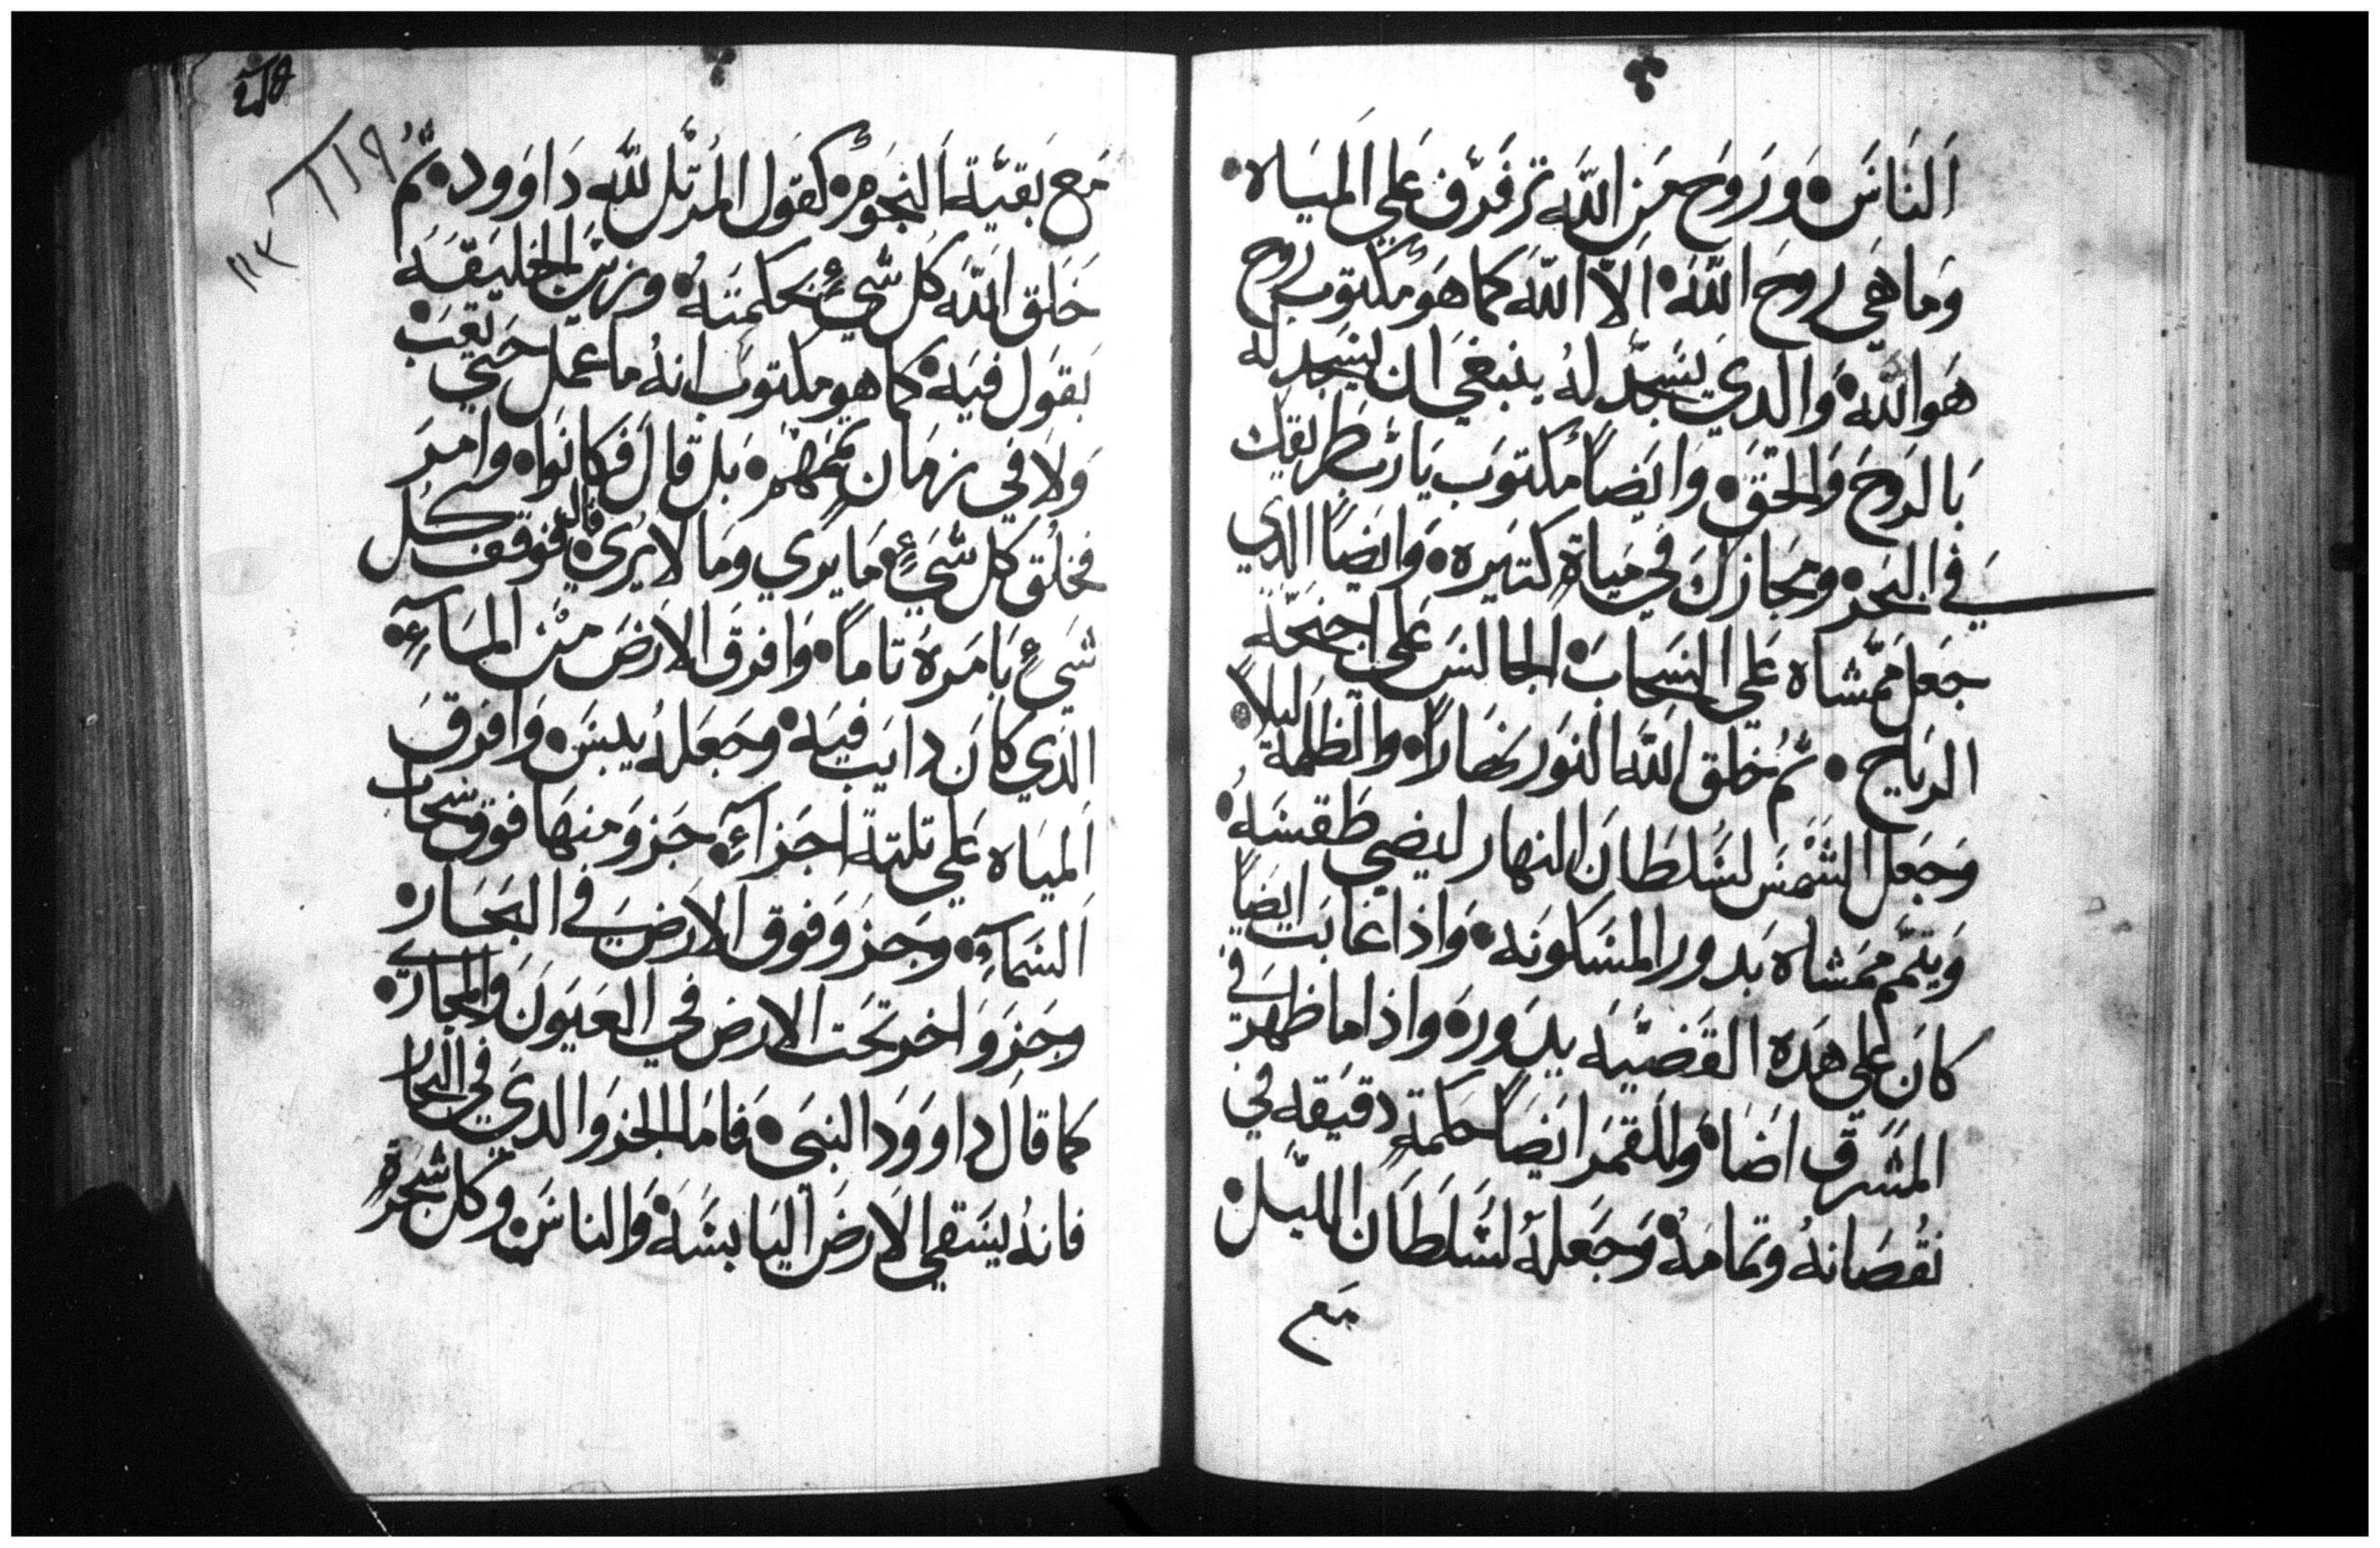 اَلنَاسَ • وَرَوَح مَن اللّه ترفَرّف عَلي اَلميَاه •
وَما هَي روحَ اللّهَ • اَلاّ اللّهَ كما هَو مكتوب روح
هَو اللّه • وَالدي يسَجد لهُ ينبغَي اَن يسَجد له
بَالروَحَ وَالحقَ • وَايَضاً مكتوَب يَارب طريقك
في البَحر • ومجَازكَ في ميَاةٍ كتيَره • وَايضاً الدي
جَعل ممَشاه عَلي السَحابَ • الجالسَ عَلي اجنحَة
الريَاح • ثم خلق اللّه النوَر نهَاراً • والظلمة ليلاً •
وَجَعل الشمَسَ لسَلطَان النهار ليضي طَقسَهُ •
وَيتمَم ممَشاه بَدور المسَكونَه • وَاذا غابَت ايضاً
كانَ عَلي هَده القَضيّه يدَورهَ واذا ما ظهر في
المشَرق اضَا • وَللقمَر ايَضاً حكمةٍ دقيَقه في
نقُصَانهُ وتمامَهُ • وَجَعلهُ لسَلطَان الليَل •
مَع
مَع بَقيّة اَلنجَوم • كقوَل المرَتل للّه دَاوَود • ثمُ
خَلق اَللّه كل شَيءٍ بحكمتهُ • وزيَن الخليَقَه
بَقوَل فيَه • كما هو مكتوَب انهُ ما عمَل حَتي تعَبَ
وَلا في زمَان تمَهَر • بَل قالَ فَكانَوا • وامرَ
فخلُق كل شَيءٍ • مَا يري ومَا لا يُري • فوَقف كل
شَيءٍ بَامَرهَ تاماً • وَافرقَ الارَضَ منَ المَآءِ •
الدَي كانَ دايَب فيَه • وَجَعَلهُ يبسَ • وَافرَقَ
اَلميَاه عَلي تلتة اجَزآءٍ • جَزوَ منهَا فوق سحَاب
اَلسَمآءِ • وَجَزوَ فوق الارَضَ في البَحَار •
وجَزوَ اخر تحَت الارض في العَيوَنَ والمجاري •
كما قالَ داوَودَ النبيَ • فَامَا الجزوَ الديَ في البحار
فانهُ يسَقي الاَرضَ اليَابسَهَ • وَالناسَ • وَكل شجَرةٍ